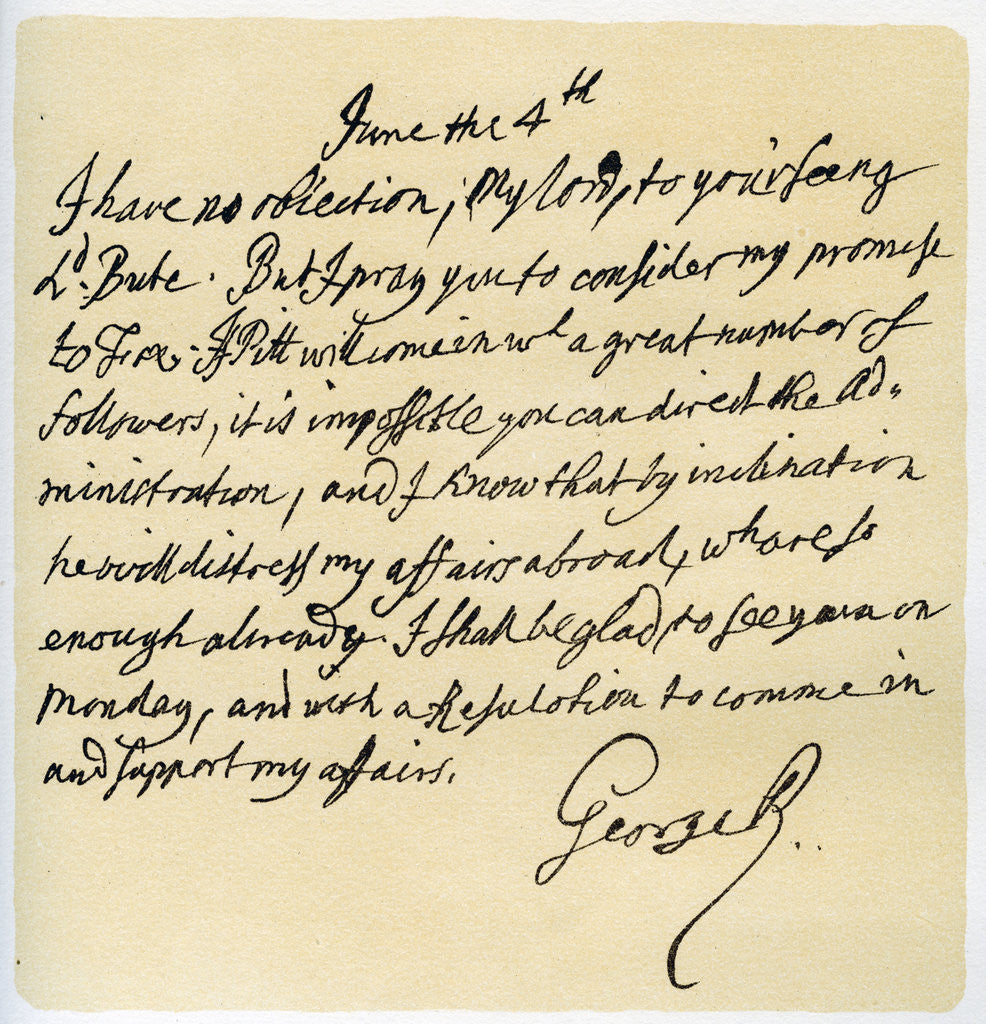 June the 4th
I have no obiection, My lord, to your seeng
Ld. Bute. But I pray you to consider my promise
to Fox. If Pitt will come in wh a great number of
followers, it is impossible you can direct the Ad„
ministration, and I know that by inclination
he will distress my affairs abroad, wh are so
enough alwready. I shall be glad, to see you on
Monday, and with a Resulotion to comme in
and support my affairs.
George R..